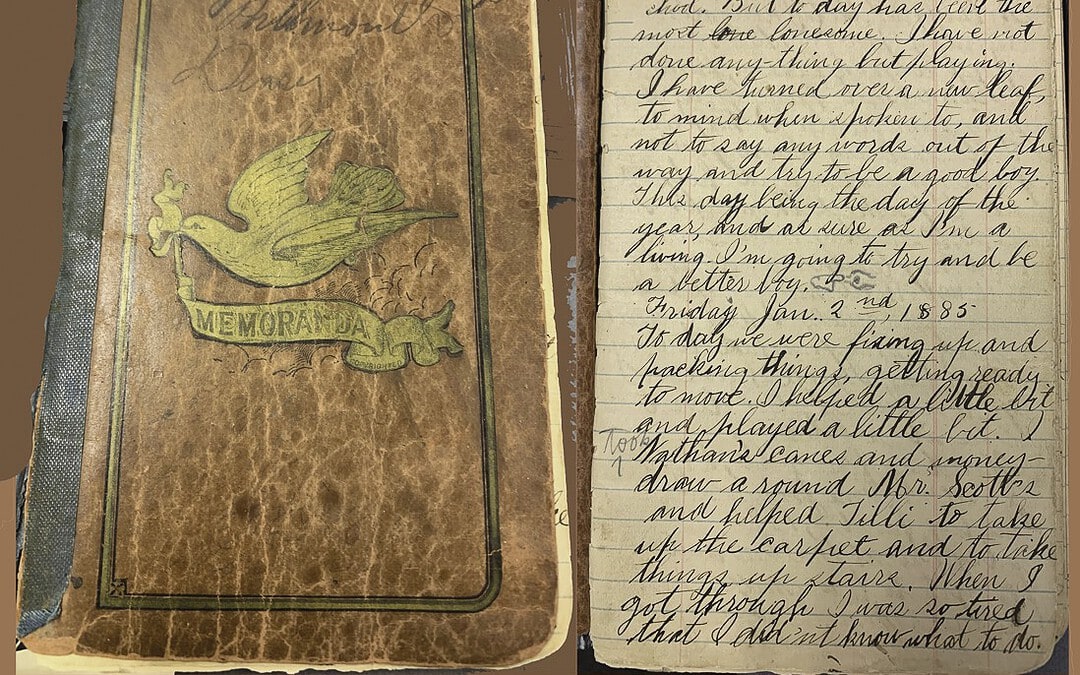 Diary
MEMORANDA
had. But to day has been the
most lone lonesome. I have not
done any-thing but playing.
I have turned over a new leaf,
to mind when spoken to, and
not to say any words out of the
way and try to be a good boy
This day being the day of the
year, and as sure as I'm a
living. I'm going to try and be
a better boy.
Friday Jan. 2nd, 1885
To day we were fixing up and
packing things, getting ready
to move. I helped a little bit
and played a little bit. I
Took
Nathan's canes and money-
draw a round Mr. Scott's
and helped Tilli to take
up the carpet and to take
things up stairs. When I
got through I was so tired
that I did'nt know what to do.